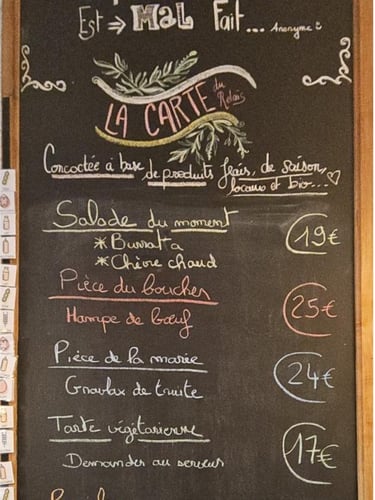 Est → MAL Fait... Anonyme
LA CARTE du Relais
Concoctée à base de produits frais, de saison,
locaux et bio...
Salade du moment 19€
* Burrata
* Chèvre chaud
Pièce du boucher 25€
Hampe de bœuf
Pièce de la marée 24€
Gravlax de truite
Tarte végétarienne 17€
Demander au serveur